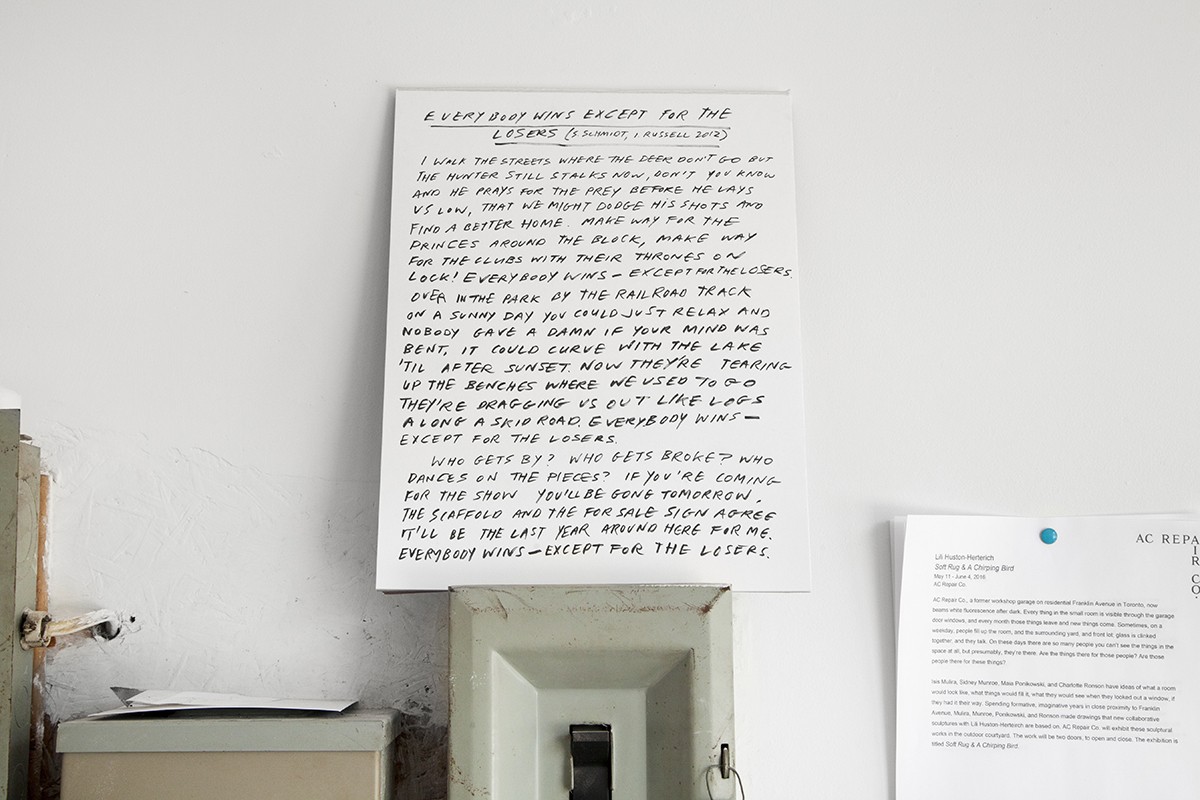 EVERYBODY WINS EXCEPT FOR THE
LOSERS (S SCHMIDT, I. RUSSELL 2012)
I WALK THE STREETS WHERE THE DEER DON'T GO BUT
THE HUNTER STILL STALKS NOW, DON'T YOU KNOW
AND HE PRAYS FOR THE PREY BEFORE HE LAYS
US LOW, THAT WE MIGHT DODGE HIS SHOTS AND
FIND A BETTER HOME. MAKE WAY FOR THE
PRINCES AROUND THE BLOCK, MAKE WAY
FOR THE CLUBS WITH THEIR THRONES ON
LOCK! EVERYBODY WINS – EXCEPT FOR THE LOSERS.
OVER IN THE PARK BY THE RAILROAD TRACK
ON A SUNNY DAY YOU COULD JUST RELAX AND
NOBODY GAVE A DAMN IF YOUR MIND WAS
BENT, IT COULD CURVE WITH THE LAKE
'TIL AFTER SUNSET. NOW THEY'RE TEARING
UP THE BENCHES WHERE WE USED TO GO
THEY'RE DRAGGING US OUT LIKE LOGS
ALONG A SKID ROAD. EVERYBODY WINS –
EXCEPT FOR THE LOSERS.
WHO GETS BY? WHO GETS BROKE? WHO
DANCES ON THE PIECES? IF YOU'RE COMING
FOR THE SHOW YOU'LL BE GONE TOMORROW.
THE SCAFFOLD AND THE FOR SALE SIGN AGREE
IT'LL BE THE LAST YEAR AROUND HERE FOR ME.
EVERYBODY WINS – EXCEPT FOR THE LOSERS.
AC REPA
I
R
C
O
.
Lili Huston-Herterich
Soft Rug & A Chirping Bird
May 11 - June 4, 2016
AC Repair Co.
AC Repair Co., a former workshop garage on residential Franklin Avenue in Toronto, now
beams white fluorescence after dark. Every thing in the small room is visible through the garage
door windows, and every month those things leave and new things come. Sometimes, on a
weekday, people fill up the room, and the surrounding yard, and front lot; glass is clinked
together, and they talk. On these days there are so many people you can't see the things in the
space at all, but presumably, they're there. Are the things there for those people? Are those
people there for these things?
Isis Mulira, Sidney Munroe, Maia Ponikowski, and Charlotte Ronson have ideas of what a room
would look like, what things would fill it, what they would see when they looked out a window, if
they had it their way. Spending formative, imaginative years in close proximity to Franklin
Avenue, Mulira, Munroe, Ponikowski, and Ronson made drawings that new collaborative
sculptures with Lili Huston-Herterich are based on. AC Repair Co. will exhibit these sculptural
works in the outdoor courtyard. The work will be two doors, to open and close. The exhibition is
titled Soft Rug & A Chirping Bird.